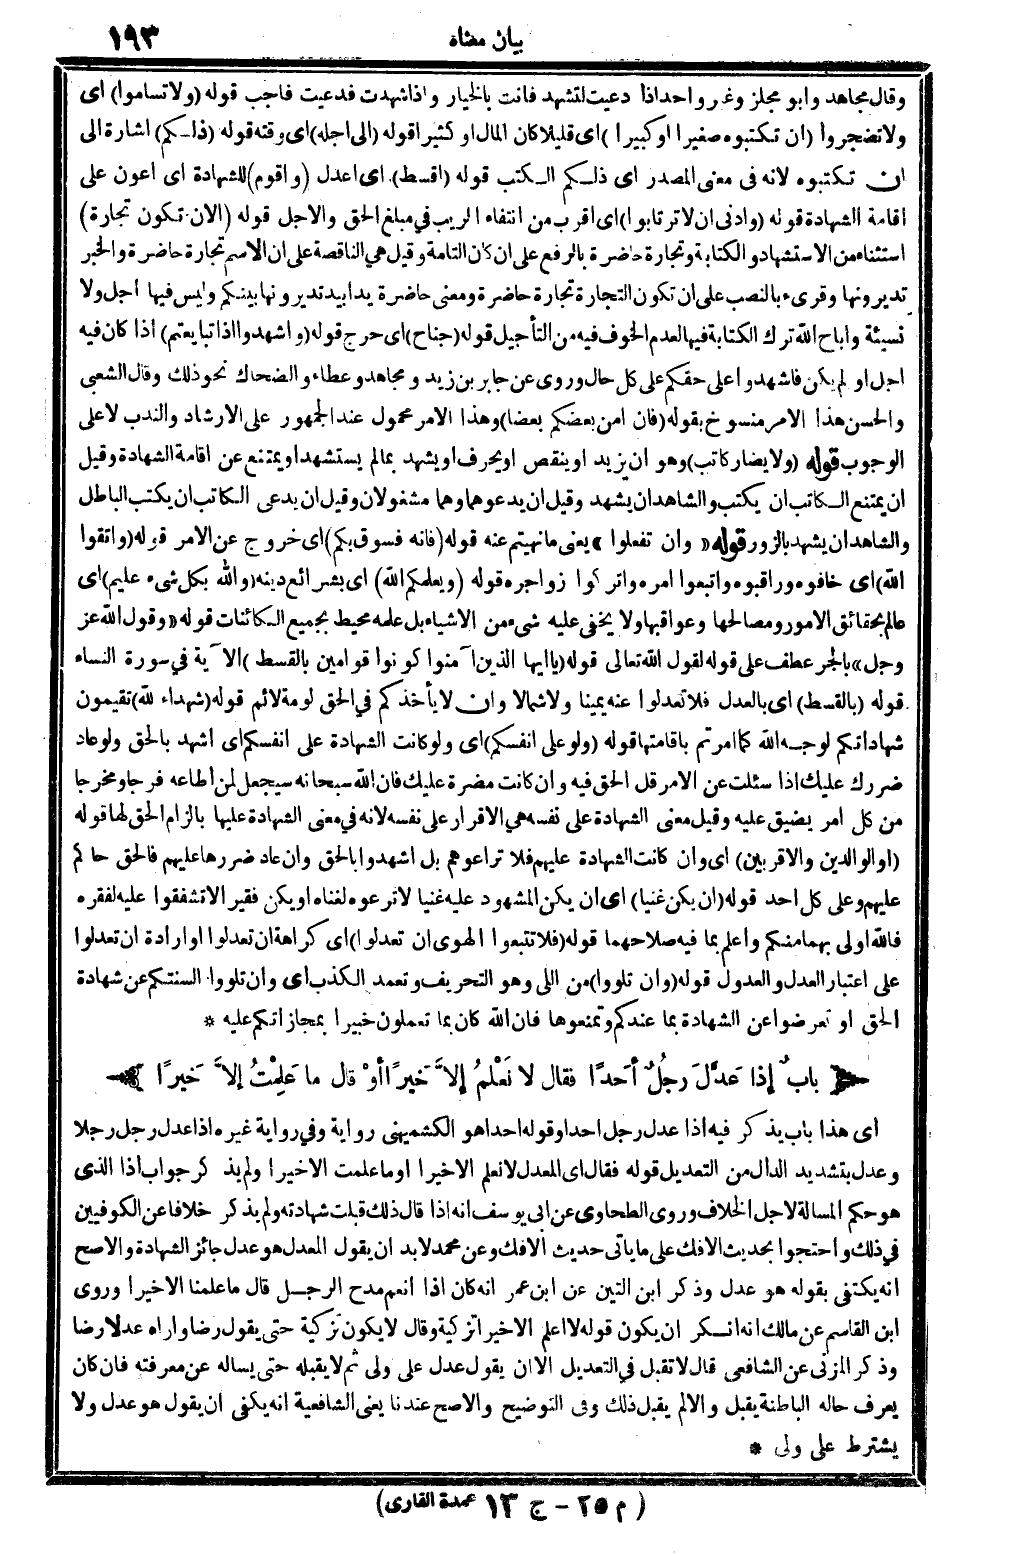 بيان معناه ١٩٣
وقال مجاهد وابو مجلز وغير واحد اذا دعيت لتشهد فانت بالخيار واذا شهدت فدعيت فاجب قوله (ولا تساموا) اى
ولا تضجروا (ان تكتبوه صغيرا او كبيرا) اى قليلا كان المال او كثيرا قوله (الى اجله) اى وقته قوله (ذلكم) اشارة الى
ان تكتبوه لانه فى معنى المصدر اى ذلكم الكتب قوله (اقسط) اى اعدل (واقوم) للشهادة اى اعون على
اقامة الشهادة قوله (وادنى ان لا ترتابوا) اى اقرب من انتفاء الريب في مبلغ الحق والاجل قوله (الا ان تكون تجارة)
استثناء من الاستشهاد والكتابة وتجارة حاضرة بالرفع على ان كان التامة وقيل هي الناقصة على ان الاسم تجارة حاضرة والخبر
تديرونها وقرىء بالنصب على ان تكون التجارة تجارة حاضرة ومعنى حاضرة يدا بيد تديرونها بينكم وليس فيها اجل ولا
نسيئة واباح الله ترك الكتابة فيها لعدم الخوف فيه من التأجيل قوله (جناح) اى حرج قوله (واشهدوا اذا تبايعتم) اذا كان فيه
اجل او لم يكن فاشهدوا على حقكم على كل حال وروى عن جابر بن زيد ومجاهد وعطاء والضحاك نحو ذلك وقال الشعبي
والحسن هذا الامر منسوخ بقوله (فان امن بعضكم بعضا) وهذا الامر محمول عند الجمهور على الارشاد والندب لا على
الوجوب قوله (ولا يضار كاتب) وهو ان يزيد او ينقص او يحرف او يشهد بمالم يستشهد او يمتنع عن اقامة الشهادة وقيل
ان يمتنع الكاتب ان يكتب والشاهد ان يشهد وقيل ان يدعوهما وهما مشغولان وقيل ان يدعى الكاتب ان يكتب الباطل
والشاهد ان يشهد بالزور قوله « وان تفعلوا » يعنى ما نهيتم عنه قوله (فانه فسوق بكم) اى خروج عن الامر قوله (واتقوا
الله) اى خافوه وراقبوه واتبعوا امره واتركوا زواجره قوله (ويعلمكم الله) اى بشرائع دينه (والله بكل شىء عليم) اى
عالم بحقائق الامور ومصالحها وعواقبها ولا يخفى عليه شىء من الاشياء بل علمه محيط بجميع الكائنات قوله « وقول الله عز
وجل » بالجر عطف على قوله لقول الله تعالى قوله (يا ايها الذين آمنوا كونوا قوامين بالقسط) الآية في سورة النساء
قوله (بالقسط) اى بالعدل فلا تعدلوا عنه يمينا ولا شمالا وان لا يأخذكم في الحق لومة لائم قوله (شهداء لله) تقيمون
شهاداتكم لوجه الله كما امرتم باقامتها قوله (ولو على انفسكم) اى ولو كانت الشهادة على انفسكم اى اشهد بالحق ولو عاد
ضررك عليك اذا سئلت عن الامر قل الحق فيه وان كانت مضرة عليك فان الله سبحانه سيجعل لمن أطاعه فرجا ومخرجا
من كل امر يضيق عليه وقيل معنى الشهادة على نفسه هي الاقرار على نفسه لانه في معنى الشهادة عليها بالزام الحق لها قوله
(او الوالدين والاقربين) اى وان كانت الشهادة عليهم فلا تراعوهم بل اشهدوا بالحق وان عاد ضررها عليهم فالحق حاكم
عليهم وعلى كل احد قوله (ان يكن غنيا) اى ان يكن المشهود عليه غنيا لا ترعوه لغناه او يكن فقيرا لا تشفقوا عليه لفقره
فالله اولى بهما منكم واعلم بما فيه صلاحهما قوله (فلا تتبعوا الهوى ان تعدلوا) اى كراهة ان تعدلوا او ارادة ان تعدلوا
على اعتبار العدل والعدول قوله (وان تلووا) من اللى وهو التحريف وتعمد الكذب اى وان تلووا السنتكم عن شهادة
الحق او تعرضوا عن الشهادة بما عندكم وتمنعوها فان الله كان بما تعملون خبيرا بمجازاتكم عليه *
باب إذا عدّل رجلٌ أحدًا فقال لا نَعْلَمُ إلاَّ خيرًا أو قال ما عَلِمْتُ إلاَّ خيرًا
اى هذا باب يذكر فيه اذا عدل رجل احدا وقوله احدا هو الكشميهنى رواية وفي رواية غيره اذا عدل رجل رجلا
وعدل بتشديد الدال من التعديل قوله فقال اى المعدل لا نعلم الا خيرا او ما علمت الا خيرا ولم يذكر جواب اذا الذى
هو حكم المسالة لاجل الخلاف وروى الطحاوى عن ابى يوسف انه اذا قال ذلك قبلت شهادته ولم يذكر خلافا عن الكوفيين
في ذلك واحتجوا بحديث الافك على ما ياتى حديث الافك وعن محمد لابد ان يقول المعدل هو عدل جائز الشهادة والاصح
انه يكتفى بقوله هو عدل وذكر ابن التين عن ابن عمر انه كان اذا انعم مدح الرجل قال ما علمنا الا خيرا وروى
ابن القاسم عن مالك انه انكر ان يكون قوله لا اعلم الا خيرا تزكية وقال لا يكون تزكية حتى يقول رضا واراه عدلا رضا
وذكر المزنى عن الشافعى قال لا تقبل في التعديل الا ان يقول عدل على ولى ثم لا يقبله حتى يساله عن معرفته فان كان
يعرف حاله الباطنة يقبل والا لم يقبل ذلك وفى التوضيح والاصح عندنا يعنى الشافعية انه يكفى ان يقول هو عدل ولا
يشترط على ولى *
(م ٢٥ - ج ١٣ عمدة القارى)